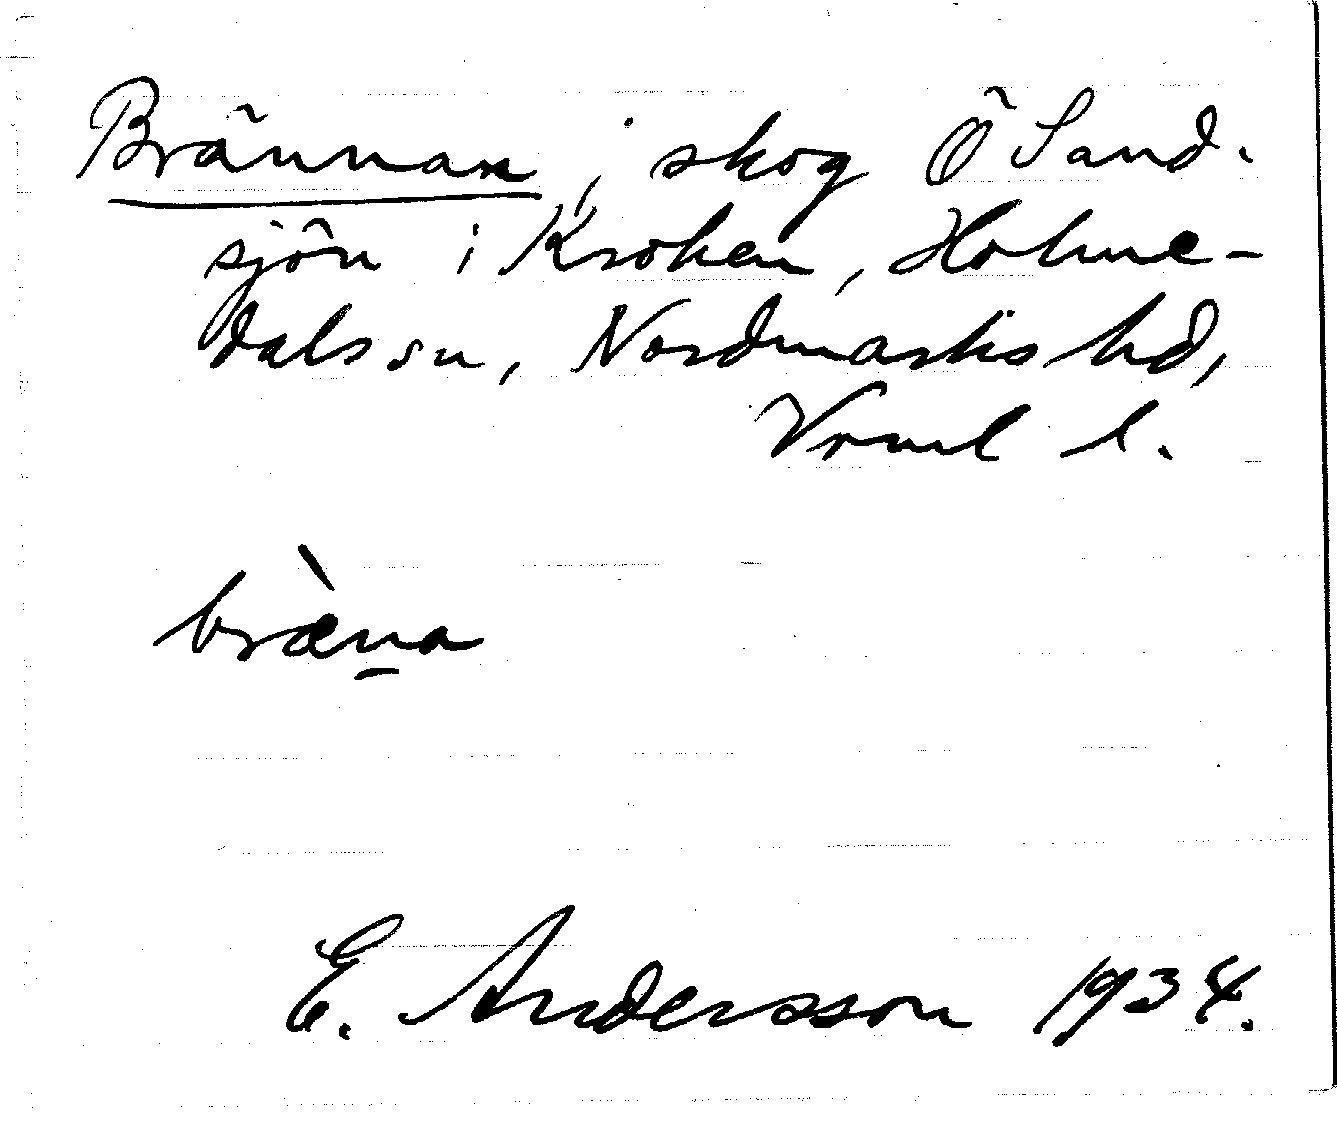 Brännan, skog Ö Sand-
sjön i Kroken, Holme-
dals sn, Nordmarks hd,
Vrml l.
bræ̀n̠a
E. Andersson 1934.